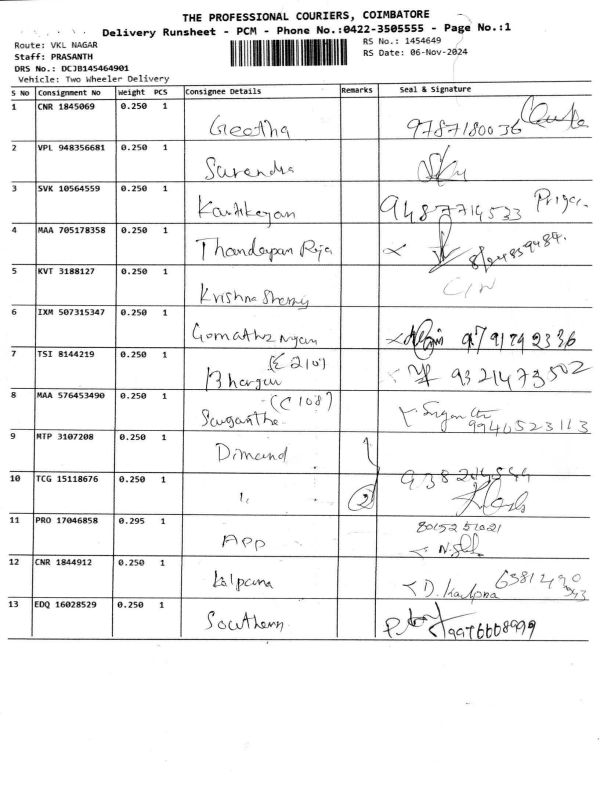 THE PROFESSIONAL COURIERS, COIMBATORE
Delivery Runsheet - PCM - Phone No.:0422-3505555 - Page No.:1
Route: VKL NAGAR
Staff: PRASANTH
DRS No.: DCJB145464901
Vehicle: Two Wheeler Delivery
RS No.: 1454649
RS Date: 06-Nov-2024
S No Consignment No Weight PCS Consignee Details Remarks Seal & Signature
1 CNR 1845069 0.250 1 Geetha 9787180036
2 VPL 948356681 0.250 1 Surendra
3 SVK 10564559 0.250 1 Kartikeyan 9487714533 Priya.
4 MAA 705178358 0.250 1 Thandapan Raja
5 KVT 3188127 0.250 1 Krishna C/W
6 IXM 507315347 0.250 1 9791792336
7 TSI 8144219 0.250 1 Bhargav (E 210) 9321473502
8 MAA 576453490 0.250 1 Sugantha (C 108) 9940523113
9 MTP 3107208 0.250 1 Dimand
10 TCG 15118676 0.250 1 " 2
11 PRO 17046858 0.295 1 APP 8015251021
12 CNR 1844912 0.250 1 Kalpana D. Kalpana
13 EDQ 16028529 0.250 1 Southern 9976608999